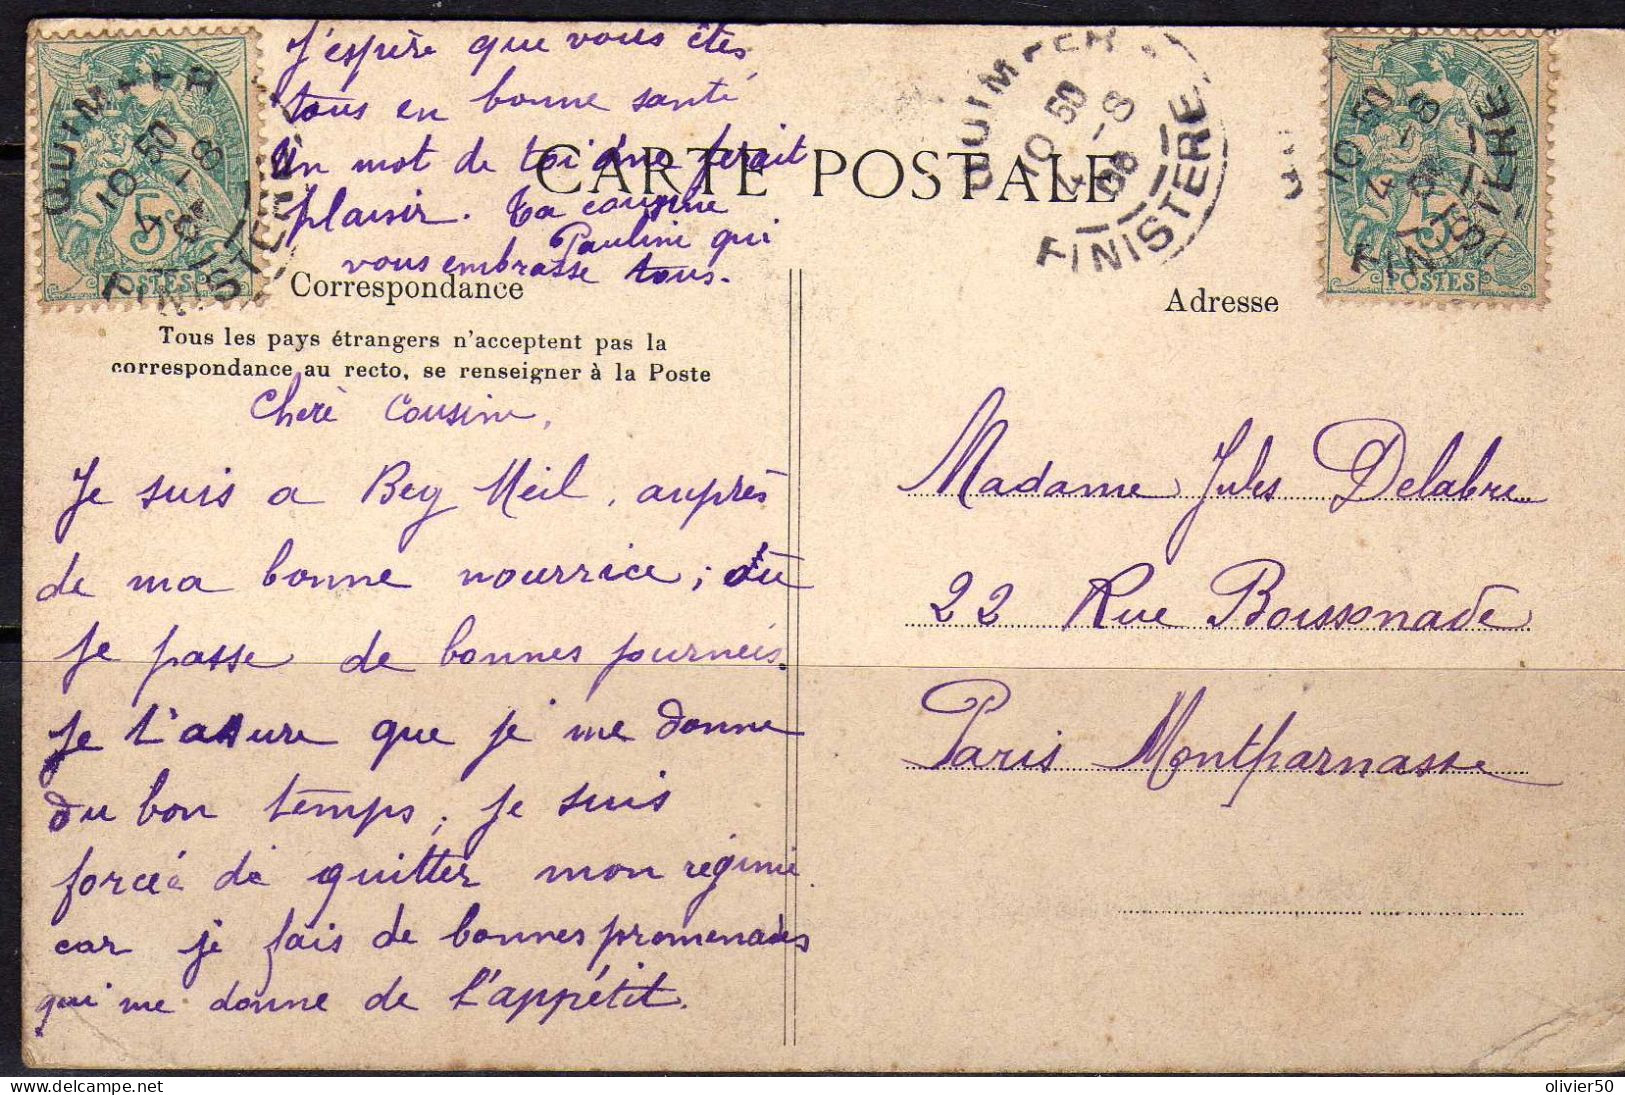 J'espère que vous êtes
tous en bonne santé
Un mot de toi me ferait
plaisir. Ta cousine
Pauline qui
vous embrasse tous.
CARTE POSTALE
QUIMPER
10 50
4 - 8
08
FINISTERE
5
POSTES
5
POSTES
Correspondance
Adresse
Tous les pays étrangers n'acceptent pas la
correspondance au recto, se renseigner à la Poste
Cheré Cousine,
Je suis a Beg Meil, auprès
de ma bonne nourrice; où
je passe de bonnes journeis.
je t'assure que je me donne
du bon temps, je suis
forcéé de quitter mon régime
car je fais de bonnes promenades
qui me donne de l'appétit.
Madame Jules Delabre
22 Rue Boissonade
Paris Montparnasse
olivier50